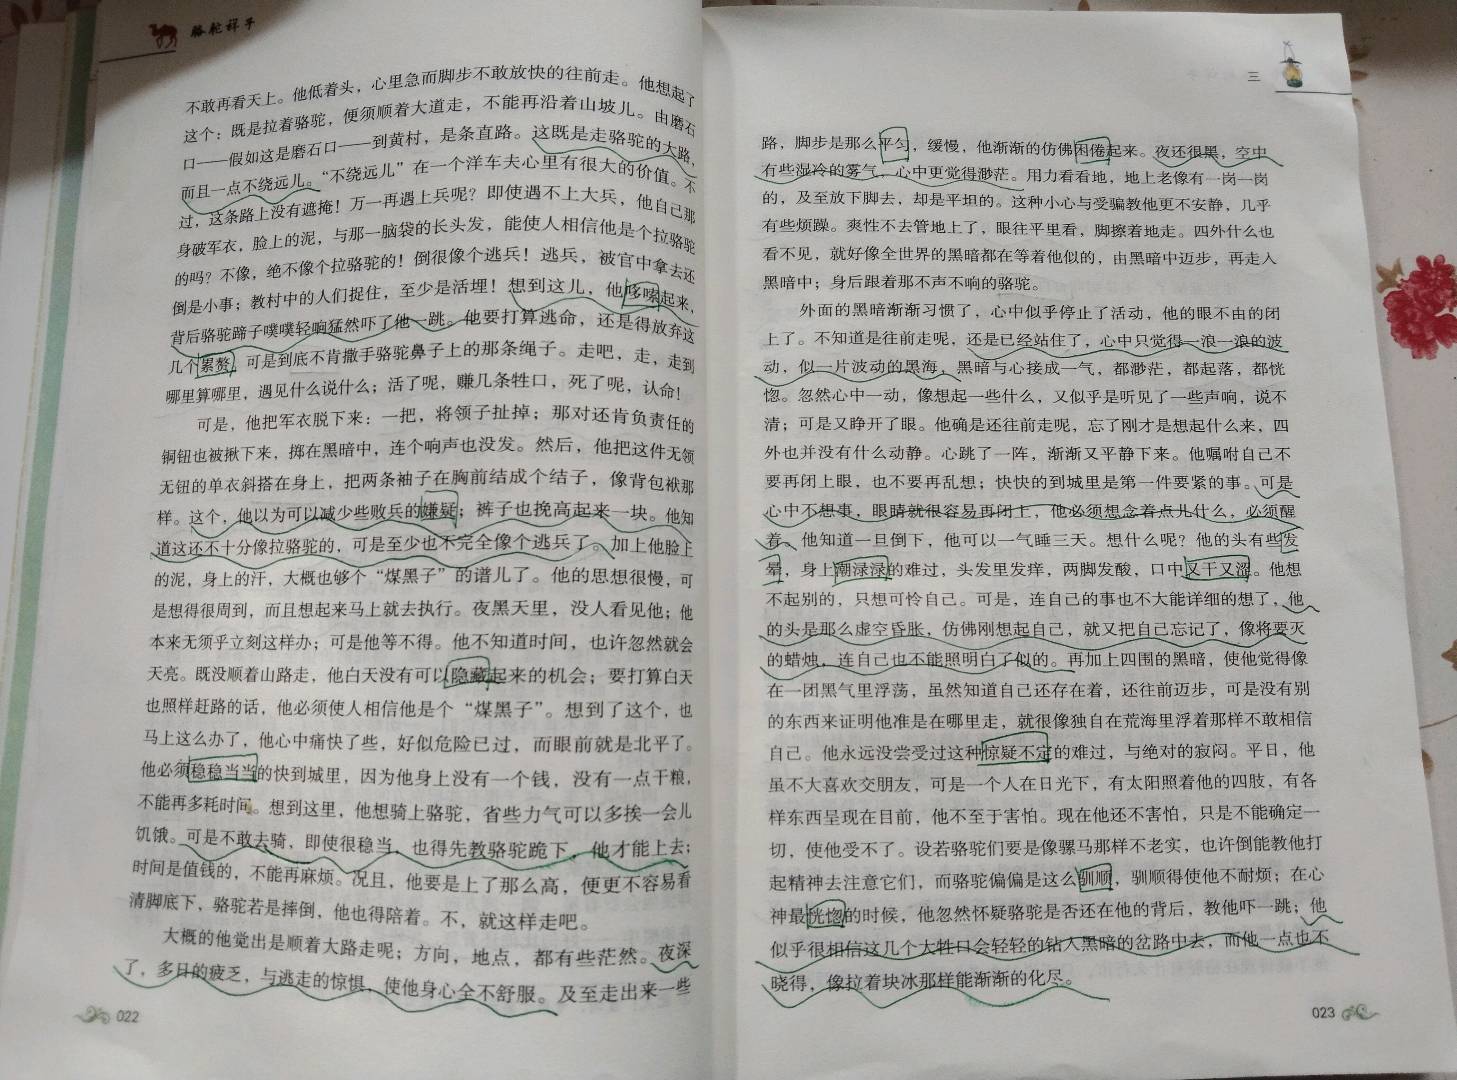 骆驼祥子
不敢再看天上。他低着头，心里急而脚步不敢放快的往前走。他想起了
这个：既是拉着骆驼，便须顺着大道走，不能再沿着山坡儿。由磨石
口——假如这是磨石口——到黄村，是条直路。这既是走骆驼的大路，
而且一点不绕远儿。“不绕远儿”在一个洋车夫心里有很大的价值。不
过，这条路上没有遮掩！万一再遇上兵呢？即使遇不上大兵，他自己那
身破军衣，脸上的泥，与那一脑袋的长头发，能使人相信他是个拉骆驼
的吗？不像，绝不像个拉骆驼的！倒很像个逃兵！逃兵，被官中拿去还
倒是小事；教村中的人们捉住，至少是活埋！想到这儿，他哆嗦起来，
背后骆驼蹄子噗噗轻响猛然吓了他一跳。他要打算逃命，还是得放弃这
几个累赘。可是到底不肯撒手骆驼鼻子上的那条绳子。走吧，走，走到
哪里算哪里，遇见什么说什么；活了呢，赚几条牲口，死了呢，认命！
可是，他把军衣脱下来：一把，将领子扯掉；那对还肯负责任的
铜钮也被揪下来，掷在黑暗中，连个响声也没发。然后，他把这件无领
无钮的单衣斜搭在身上，把两条袖子在胸前结成个结子，像背包袱那
样。这个，他以为可以减少些败兵的嫌疑；裤子也挽高起来一块。他知
道这还不十分像拉骆驼的，可是至少也不完全像个逃兵了。加上他脸上
的泥，身上的汗，大概也够个“煤黑子”的谱儿了。他的思想很慢，可
是想得很周到，而且想起来马上就去执行。夜黑天里，没人看见他；他
本来无须乎立刻这样办；可是他等不得。他不知道时间，也许忽然就会
天亮。既没顺着山路走，他白天没有可以隐藏起来的机会；要打算白天
也照样赶路的话，他必须使人相信他是个“煤黑子”。想到了这个，也
马上这么办了，他心中痛快了些，好似危险已过，而眼前就是北平了。
他必须稳稳当当的快到城里，因为他身上没有一个钱，没有一点干粮，
不能再多耗时间。想到这里，他想骑上骆驼，省些力气可以多挨一会儿
饥饿。可是不敢去骑，即使很稳当，也得先教骆驼跪下，他才能上去；
时间是值钱的，不能再麻烦。况且，他要是上了那么高，便更不容易看
清脚底下，骆驼若是摔倒，他也得陪着。不，就这样走吧。
大概的他觉出是顺着大路走呢；方向，地点，都有些茫然。夜深
了，多日的疲乏，与逃走的惊惧，使他身心全不舒服。及至走出来一些
022
三
路，脚步是那么平匀，缓慢，他渐渐的仿佛困倦起来。夜还很黑，空中
有些湿冷的雾气，心中更觉得渺茫。用力看看地，地上老像有一岗一岗
的，及至放下脚去，却是平坦的。这种小心与受骗教他更不安静，几乎
有些烦躁。爽性不去管地上了，眼往平里看，脚擦着地走。四外什么也
看不见，就好像全世界的黑暗都在等着他似的，由黑暗中迈步，再走入
黑暗中；身后跟着那不声不响的骆驼。
外面的黑暗渐渐习惯了，心中似乎停止了活动，他的眼不由的闭
上了。不知道是往前走呢，还是已经站住了，心中只觉得一浪一浪的波
动，似一片波动的黑海，黑暗与心接成一气，都渺茫，都起落，都恍
惚。忽然心中一动，像想起一些什么，又似乎是听见了一些声响，说不
清；可是又睁开了眼。他确是还往前走呢，忘了刚才是想起什么来，四
外也并没有什么动静。心跳了一阵，渐渐又平静下来。他嘱咐自己不
要再闭上眼，也不要再乱想；快快的到城里是第一件要紧的事。可是
心中不想事，眼睛就很容易再闭上，他必须想念着点儿什么，必须醒
着。他知道一旦倒下，他可以一气睡三天。想什么呢？他的头有些发
晕，身上潮渌渌的难过，头发里发痒，两脚发酸，口中又干又涩。他想
不起别的，只想可怜自己。可是，连自己的事也不大能详细的想了，他
的头是那么虚空昏胀，仿佛刚想起自己，就又把自己忘记了，像将要灭
的蜡烛，连自己也不能照明白了似的。再加上四围的黑暗，使他觉得像
在一团黑气里浮荡，虽然知道自己还存在着，还往前迈步，可是没有别
的东西来证明他准是在哪里走，就很像独自在荒海里浮着那样不敢相信
自己。他永远没尝受过这种惊疑不定的难过，与绝对的寂闷。平日，他
虽不大喜欢交朋友，可是一个人在日光下，有太阳照着他的四肢，有各
样东西呈现在目前，他不至于害怕。现在他还不害怕，只是不能确定一
切，使他受不了。设若骆驼们要是像骡马那样不老实，也许倒能教他打
起精神去注意它们，而骆驼偏偏是这么驯顺，驯顺得使他不耐烦；在心
神最恍惚的时候，他忽然怀疑骆驼是否还在他的背后，教他吓一跳；他
似乎很相信这几个大牲口会轻轻的钻入黑暗的岔路中去，而他一点也不
晓得，像拉着块冰那样能渐渐的化尽。
023